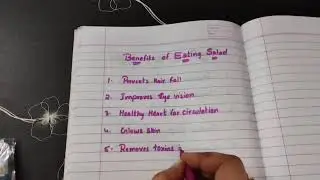 Benefits of Eating Salad
1. Prevents Hair fall
2. Improves Eye vision
3. Healthy Heart for circulation
4. Glows Skin
5. Removes toxins